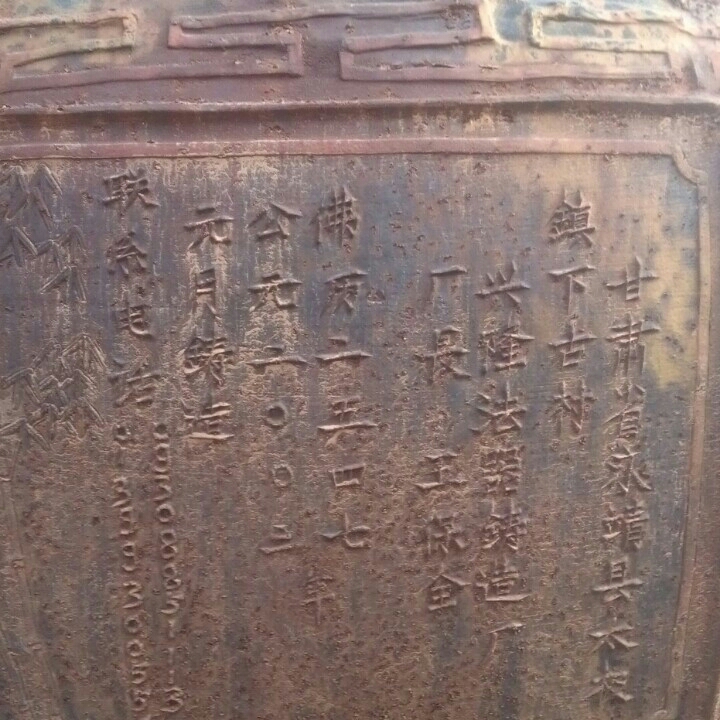 甘肃省永靖县太极
鎮下古村
兴隆法器鋳造厂
厂長 王保全
佛历二五四七年
公元二〇〇三
元月鋳造
联系电话